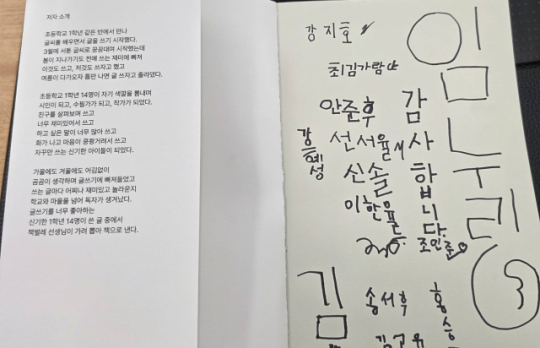 저자 소개
초등학교 1학년 같은 반에서 만나
글씨를 배우면서 글을 쓰기 시작했다.
3월에 서툰 글씨로 끙끙대며 시작했는데
봄이 지나가기도 전에 쓰는 재미에 빠져
이것도 쓰고, 저것도 쓰자고 했고
여름이 다가오자 틈만 나면 글 쓰자고 졸라댔다.
초등학교 1학년 14명이 자기 색깔을 뽐내며
시인이 되고, 수필가가 되고, 작가가 되었다.
친구를 살펴보며 쓰고
너무 재미있어서 쓰고
하고 싶은 말이 너무 많아 쓰고
화가 나고 마음이 쿵쾅거려서 쓰고
자꾸만 쓰는 신기한 아이들이 되었다.
가을에도 겨울에도 어김없이
곰곰이 생각하며 글쓰기에 빠져들었고
쓰는 글마다 어찌나 재미있고 놀라운지
학교와 마을을 넘어 독자가 생겨났다.
글쓰기를 너무 좋아하는
신기한 1학년 14명이 쓴 글 중에서
책벌레 선생님이 가려 뽑아 책으로 낸다.
강지호
최김가람
안준후
강혜성
선서율
신솔
이한율
조인준
감사합니다
임누리
송서후
홍승
김